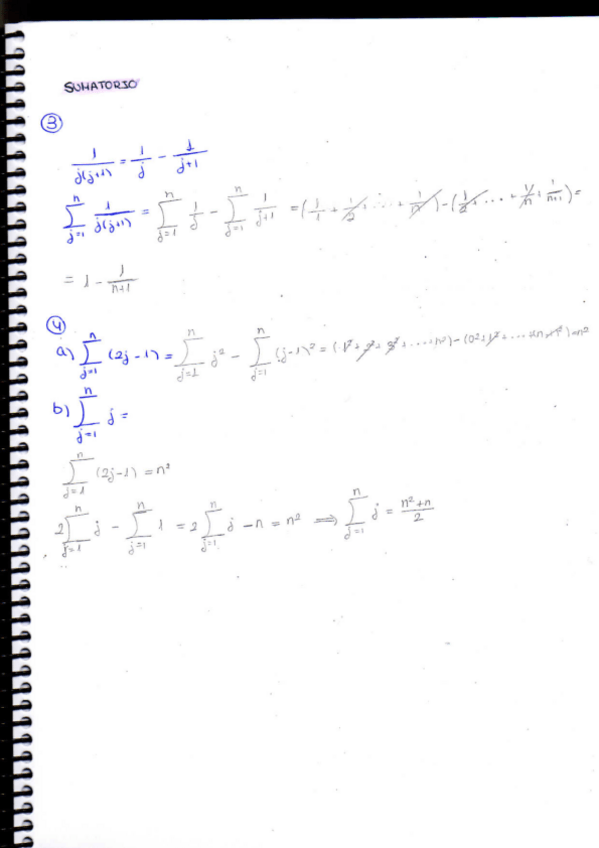 SUMATORIO
③
1/(j(j+1)) = 1/j - 1/(j+1)
∑_{j=1}^{n} 1/(j(j+1)) = ∑_{j=1}^{n} 1/j - ∑_{j=1}^{n} 1/(j+1) = (1/1 + 1/2 + ... + 1/n) - (1/2 + ... + 1/n + 1/(n+1)) =
= 1 - 1/(n+1)
④
a) ∑_{j=1}^{n} (2j-1) = ∑_{j=1}^{n} j² - ∑_{j=1}^{n} (j-1)² = (1² + 2² + 3² + ... + n²) - (0² + 1² + ... = n²
b) ∑_{j=1}^{n} j =
∑_{j=1}^{n} (2j-1) = n²
2∑_{j=1}^{n} j - ∑_{j=1}^{n} 1 = 2∑_{j=1}^{n} j - n = n² ⟹ ∑_{j=1}^{n} j = (n²+n)/2